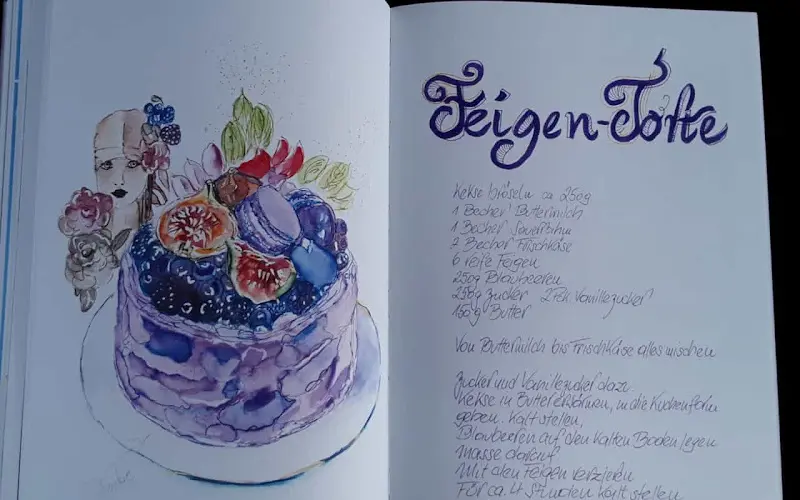 Feigen-Torte
Kekse bröseln ca 250g
1 Becher Buttermilch
1 Becher Sauerrahm
2 Becher Frischkäse
6 reife Feigen
250g Blaubeeren
250g Zucker 2 Pck Vanillezucker
150g Butter
Von Buttermilch bis Frischkäse alles mischen
Zucker und Vanillezucker dazu.
Kekse in Butter erwärmen, in die Kuchenform
geben. Kalt stellen,
Blaubeeren auf den kalten Boden legen
Masse darauf
Mit den Feigen verzieren
Für ca. 4 Stunden kalt stellen